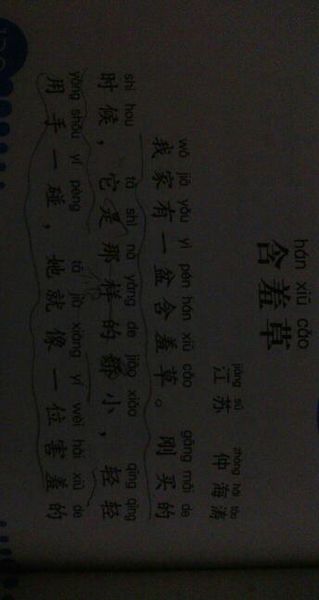 hán xiū cǎo
含羞草
jiāng sū zhòng hǎi tāo
江苏 仲海涛
wǒ jiā yǒu yì pén hán xiū cǎo gāng mǎi de
我家有一盆含羞草。刚买的
shí hou tā shì nà yàng de jiāo xiǎo qīng qīng
时候，它是那样的娇小，轻轻
yòng shǒu yí pèng tā jiù xiàng yí wèi hài xiū de
用手一碰，她就像一位害羞的